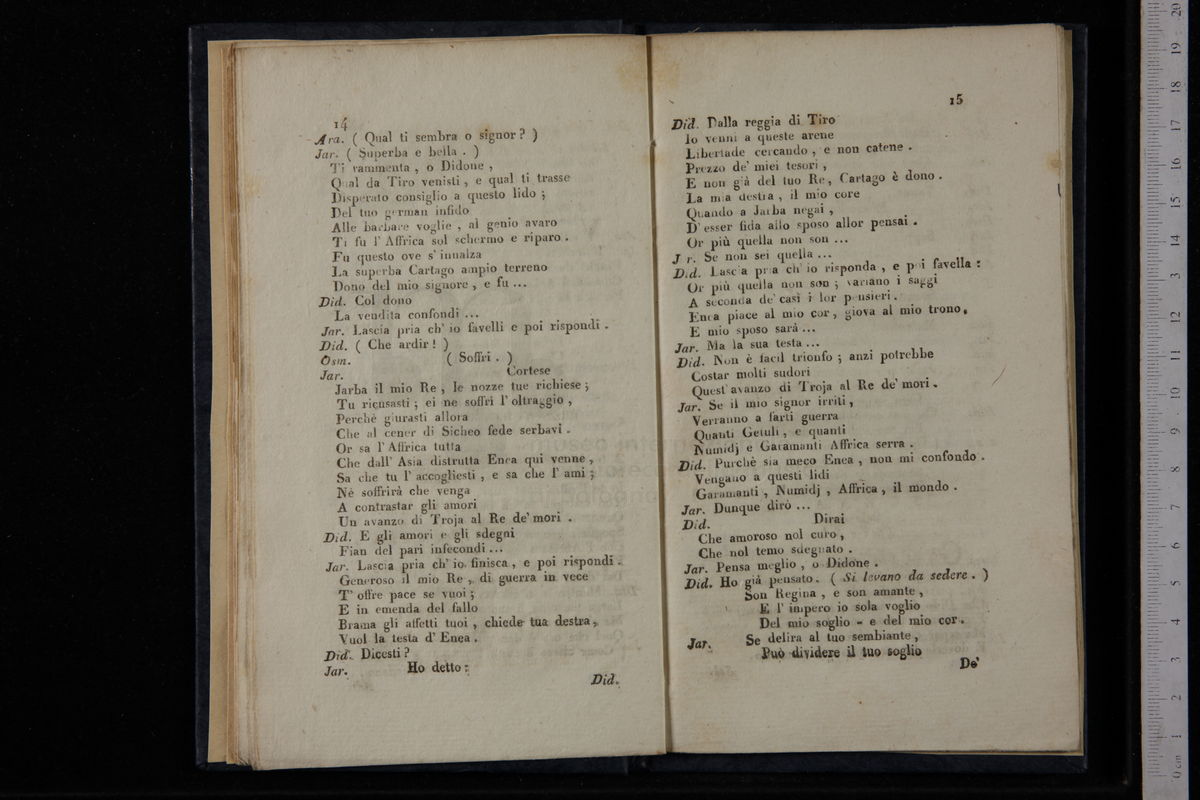 14
Ara. ( Qual ti sembra o signor? )
Jar. ( Superba e bella . )
Ti rammenta , o Didone ,
Qual da Tiro venisti , e qual ti trasse
Disperato consiglio a questo lido ;
Del tuo german infido
Alle barbare voglie , al genio avaro
Ti fu l' Affrica sol schermo e riparo .
Fu questo ove s' innalza
La superba Cartago ampio terreno
Dono del mio signore , e fu ...
Did. Col dono
La vendita confondi ...
Jar. Lascia pria ch' io favelli e poi rispondi .
Did. ( Che ardir! )
Osm. ( Soffri . )
Jar. Cortese
Jarba il mio Re , le nozze tue richiese ;
Tu ricusasti ; ei ne soffrì l' oltraggio ,
Perchè giurasti allora
Che al cener di Sicheo fede serbavi .
Or sa l' Affrica tutta
Che dall' Asia distrutta Enea qui venne ,
Sa che tu l' accogliesti , e sa che l' ami ;
Nè soffrirà che venga
A contrastar gli amori
Un avanzo di Troja al Re de' mori .
Did. E gli amori e gli sdegni
Fian del pari infecondi ...
Jar. Lascia pria ch' io finisca , e poi rispondi .
Generoso il mio Re , di guerra in vece
T' offre pace se vuoi ;
E in emenda del fallo
Brama gli affetti tuoi , chiede tua destra ,
Vuol la testa d' Enea .
Did. Dicesti ?
Jar. Ho detto :
Did.
15
Did. Dalla reggia di Tiro
Io venni a queste arene
Libertade cercando , e non catene .
Prezzo de' miei tesori ,
E non già del tuo Re , Cartago è dono .
La mia destra , il mio core
Quando a Jarba negai ,
D' esser fida allo sposo allor pensai .
Or più quella non son ...
J r. Se non sei quella ...
Did. Lascia pria ch' io risponda , e poi favella :
Or più quella non son ; variano i saggi
A seconda de' casi i lor pensieri .
Enea piace al mio cor , giova al mio trono ,
E mio sposo sarà ...
Jar. Ma la sua testa ...
Did. Non è facil trionfo ; anzi potrebbe
Costar molti sudori
Quest' avanzo di Troja al Re de' mori .
Jar. Se il mio signor irriti ,
Verranno a farti guerra
Quanti Getuli , e quanti
Numidj e Garamanti Affrica serra .
Did. Purchè sia meco Enea , non mi confondo .
Vengano a questi lidi
Garamanti , Numidj , Affrica , il mondo .
Jar. Dunque dirò ...
Did. Dirai
Che amoroso nol curo ,
Che nol temo sdegnato .
Jar. Pensa meglio , o Didone .
Did. Ho già pensato . ( Si levano da sedere . )
Son Regina , e son amante ,
E l' impero io sola voglio
Del mio soglio - e del mio cor .
Jar. Se delira al tuo sembiante ,
Può dividere il tuo soglio
De'
0 cm 1 2 3 4 5 6 7 8 9 10 11 12 13 14 15 16 17 18 19 20